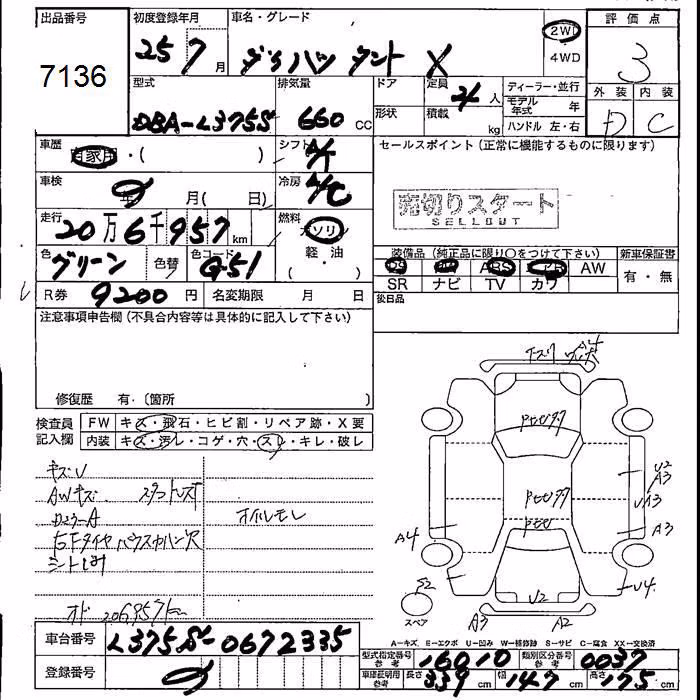 出品番号
7136
初度登録年月
25 7 月
車名・グレード
ダイハツ タント X
2WD
4WD
評価点
3
外装 内装
D C
型式
DBA-L375S
排気量
660 CC
ドア
形状
定員
4 人
積載
kg
ディーラー・並行
モデル年式 年
ハンドル 左・右
車歴
自家用・( )
シフト
A/T
車検
年 月( 日)
冷房
A/C
走行
20万6千957 km
燃料
ガソリン
軽油
( ・ )
色
グリーン
色替
色コード
G51
R券 9200 円
名変期限 月 日
セールスポイント(正常に機能するものに限ります)
売切りスタート
SELLOUT
装備品(純正品に限り○をつけて下さい)
PS PW ABS エアB AW
SR ナビ TV カワ
新車保証書
有・無
後日品
注意事項申告欄(不具合内容等は具体的に記入して下さい)
修復歴 有・〔箇所 〕
検査員記入欄
FW キズ・飛石・ヒビ割・リペア跡・X要
内装 キズ・汚レ・コゲ・穴・スレ・キレ・破レ
キズU
AWキズ
オイルモレ
オド 206,957km
U2
A3
UA3
A3
A4
U4
S2
U2
A3
A2
スペア
A−キズ E−エクボ U−凹み W−補修跡 S−サビ C−腐食 XX−交換済
車台番号 L375S-0672335
登録番号
型式指定番号 参考 16010
類別区分番号 参考 0037
車庫証明用 参考 長さ 339 cm 幅 147 cm 高さ 175 cm